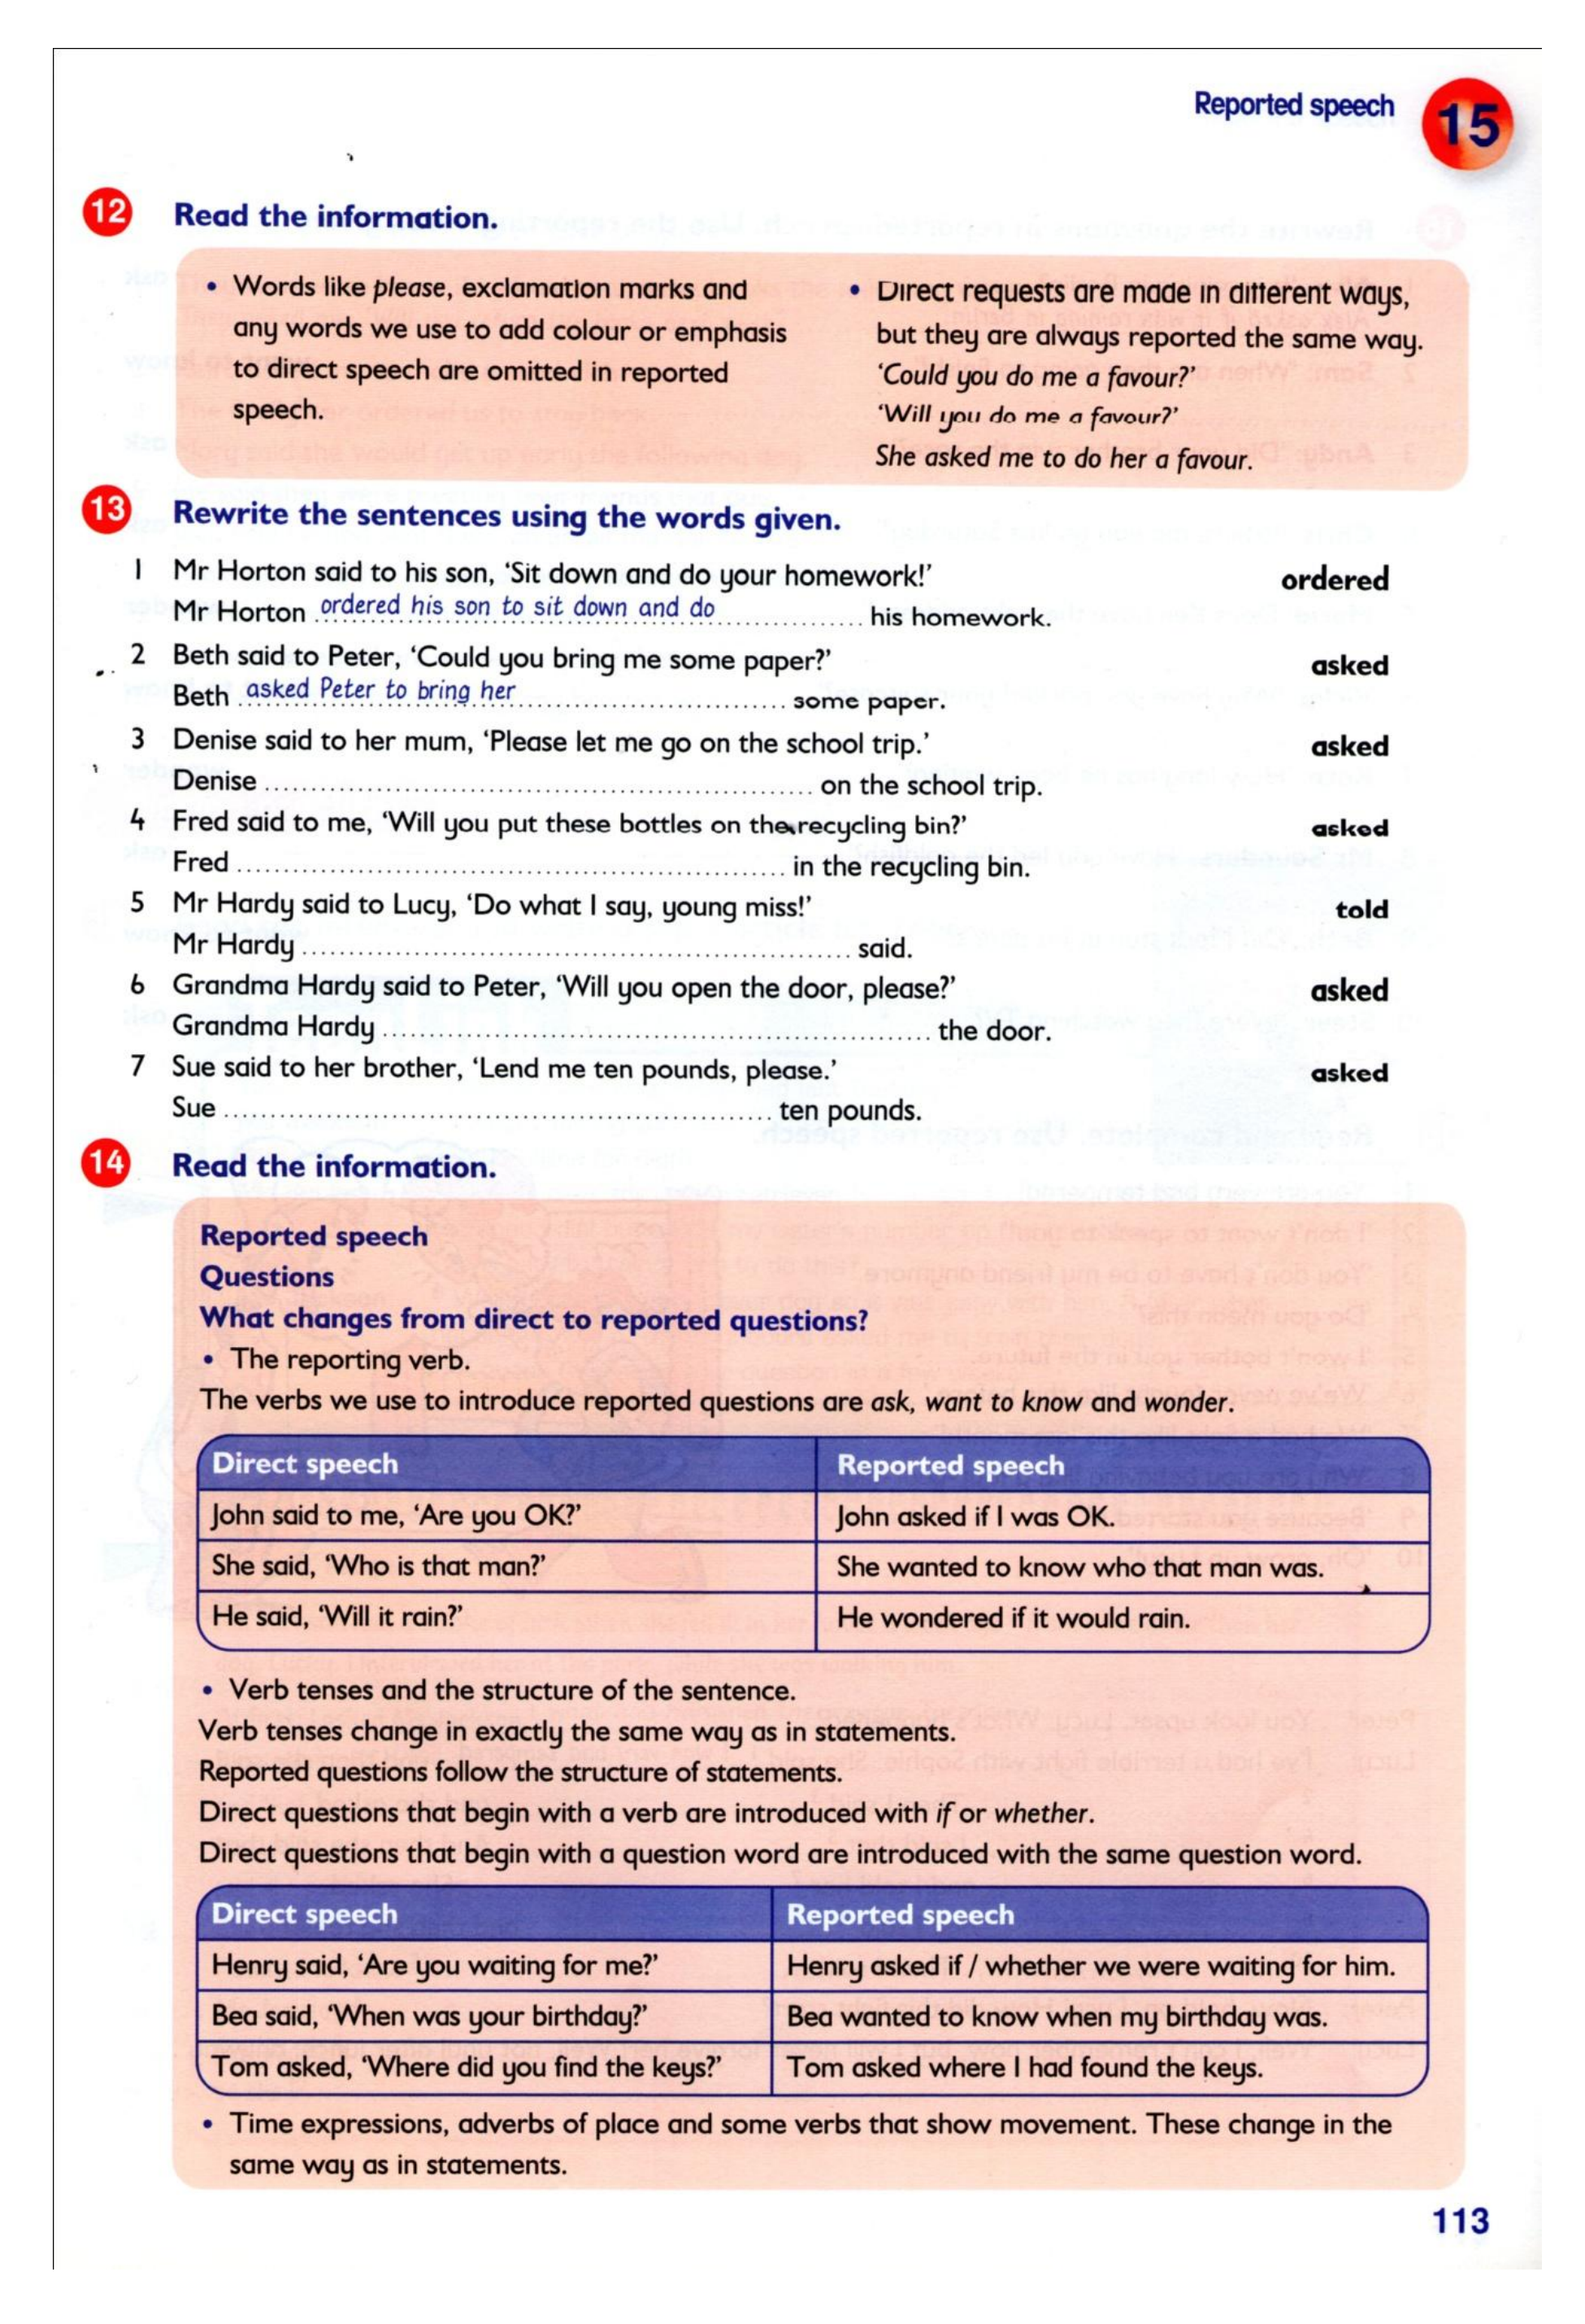 Reported speech
15
12 Read the information.
• Words like please, exclamation marks and
any words we use to add colour or emphasis
to direct speech are omitted in reported
speech.
• Direct requests are made in different ways,
but they are always reported the same way.
‘Could you do me a favour?’
‘Will you do me a favour?’
She asked me to do her a favour.
13 Rewrite the sentences using the words given.
1 Mr Horton said to his son, ‘Sit down and do your homework!’ ordered
Mr Horton ordered his son to sit down and do his homework.
2 Beth said to Peter, ‘Could you bring me some paper?’ asked
Beth asked Peter to bring her some paper.
3 Denise said to her mum, ‘Please let me go on the school trip.’ asked
Denise ........................................................ on the school trip.
4 Fred said to me, ‘Will you put these bottles on the recycling bin?’ asked
Fred ........................................................ in the recycling bin.
5 Mr Hardy said to Lucy, ‘Do what I say, young miss!’ told
Mr Hardy ........................................................ said.
6 Grandma Hardy said to Peter, ‘Will you open the door, please?’ asked
Grandma Hardy ........................................................ the door.
7 Sue said to her brother, ‘Lend me ten pounds, please.’ asked
Sue ........................................................ ten pounds.
14 Read the information.
Reported speech
Questions
What changes from direct to reported questions?
• The reporting verb.
The verbs we use to introduce reported questions are ask, want to know and wonder.
Direct speech Reported speech
John said to me, ‘Are you OK?’ John asked if I was OK.
She said, ‘Who is that man?’ She wanted to know who that man was.
He said, ‘Will it rain?’ He wondered if it would rain.
• Verb tenses and the structure of the sentence.
Verb tenses change in exactly the same way as in statements.
Reported questions follow the structure of statements.
Direct questions that begin with a verb are introduced with if or whether.
Direct questions that begin with a question word are introduced with the same question word.
Direct speech Reported speech
Henry said, ‘Are you waiting for me?’ Henry asked if / whether we were waiting for him.
Bea said, ‘When was your birthday?’ Bea wanted to know when my birthday was.
Tom asked, ‘Where did you find the keys?’ Tom asked where I had found the keys.
• Time expressions, adverbs of place and some verbs that show movement. These change in the
same way as in statements.
113